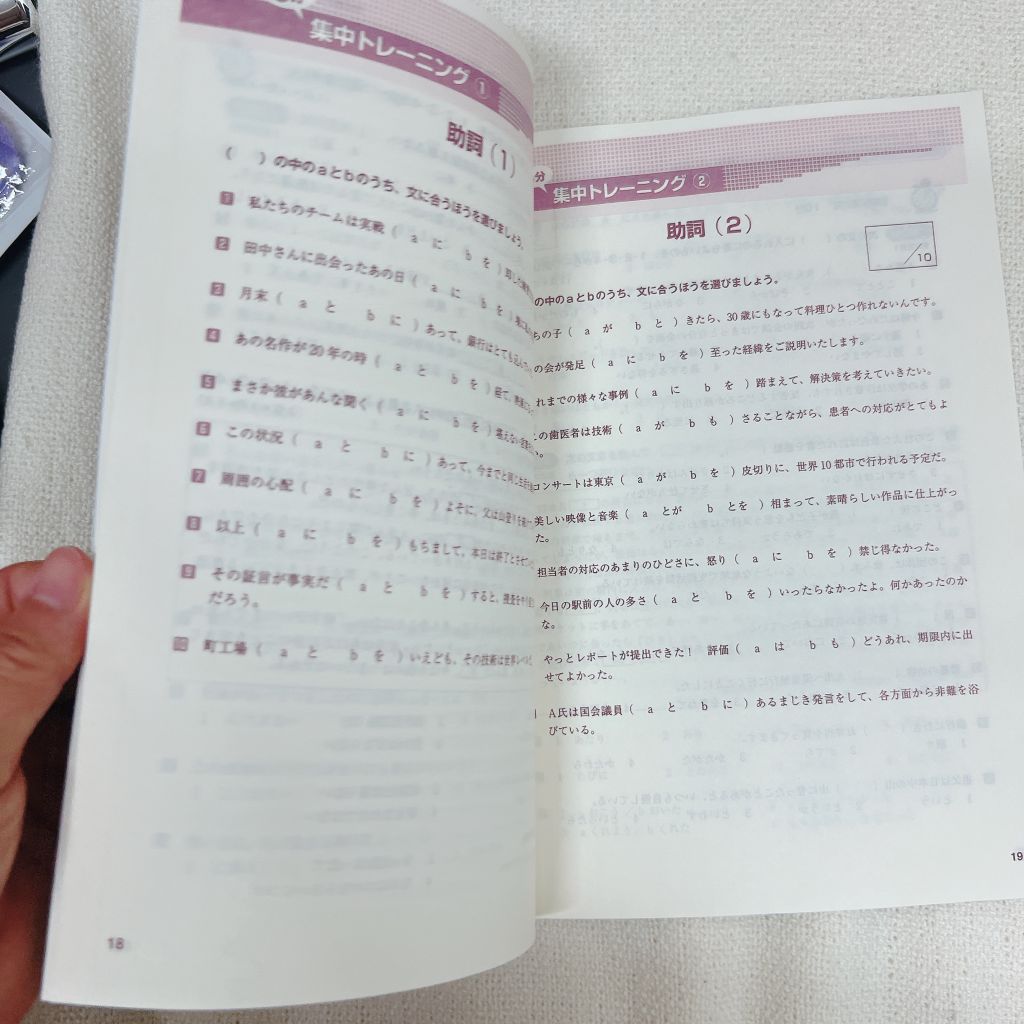 集中トレーニング ①
助詞(1)
(　)の中のaとbのうち、文に合うほうを選びましょう。
1 私たちのチームは実戦(　a　に　b　を　)即した
2 田中さんに出会ったあの日(　a　に　b　を　)
3 月末(　a　と　b　に　)あって、銀行はとても込んで
4 あの名作が20年の時(　a　と　b　を　)経て、
5 まさか彼があんな聞く(　a　に　b　を　)堪えない
6 この状況(　a　と　b　に　)あって、今までと同じ生活
7 周囲の心配(　a　に　b　を　)よそに、父は山登りを
8 以上(　a　に　b　を　)もちまして、本日は終了とさせて
9 その証言が事実だ(　a　と　b　を　)すると、捜査を
だろう。
10 町工場(　a　と　b　を　)いえども、その技術は世界
18
分
集中トレーニング ②
助詞(2)
/10
の中のaとbのうち、文に合うほうを選びましょう。
ちの子(　a　が　b　と　)きたら、30歳にもなって料理ひとつ作れないんです。
の会が発足(　a　に　b　を　)至った経緯をご説明いたします。
れまでの様々な事例(　a　に　b　を　)踏まえて、解決策を考えていきたい。
この歯医者は技術(　a　が　b　も　)さることながら、患者への対応がとてもよ
い。
コンサートは東京(　a　が　b　を　)皮切りに、世界10都市で行われる予定だ。
美しい映像と音楽(　a　とが　b　とを　)相まって、素晴らしい作品に仕上がっ
た。
担当者の対応のあまりのひどさに、怒り(　a　に　b　を　)禁じ得なかった。
今日の駅前の人の多さ(　a　と　b　を　)いったらなかったよ。何かあったのか
な。
やっとレポートが提出できた！　評価(　a　は　b　も　)どうあれ、期限内に出
せてよかった。
A氏は国会議員(　a　と　b　に　)あるまじき発言をして、各方面から非難を浴
びている。
19